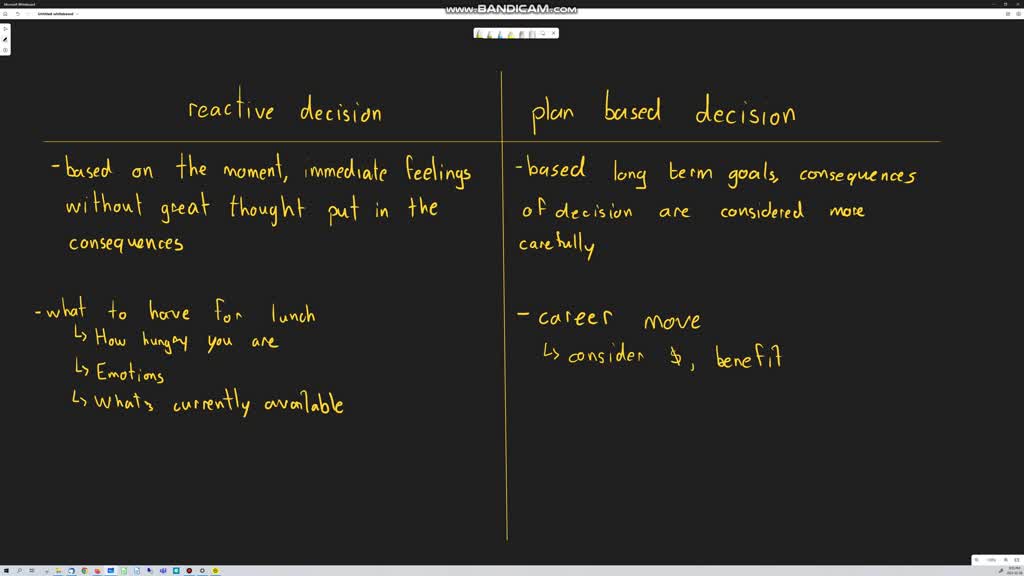 Microsoft Whiteboard
WWW.BANDICAM.COM
Untitled whiteboard
reactive decision
- based on the moment, immediate feelings
without great thought put in the
consequences
- what to have for lunch
↳ How hungry you are
↳ Emotions
↳ What's currently available
plan based decision
- based long term goals, consequences
of decision are considered more
carefully
- career move
↳ consider $, benefit